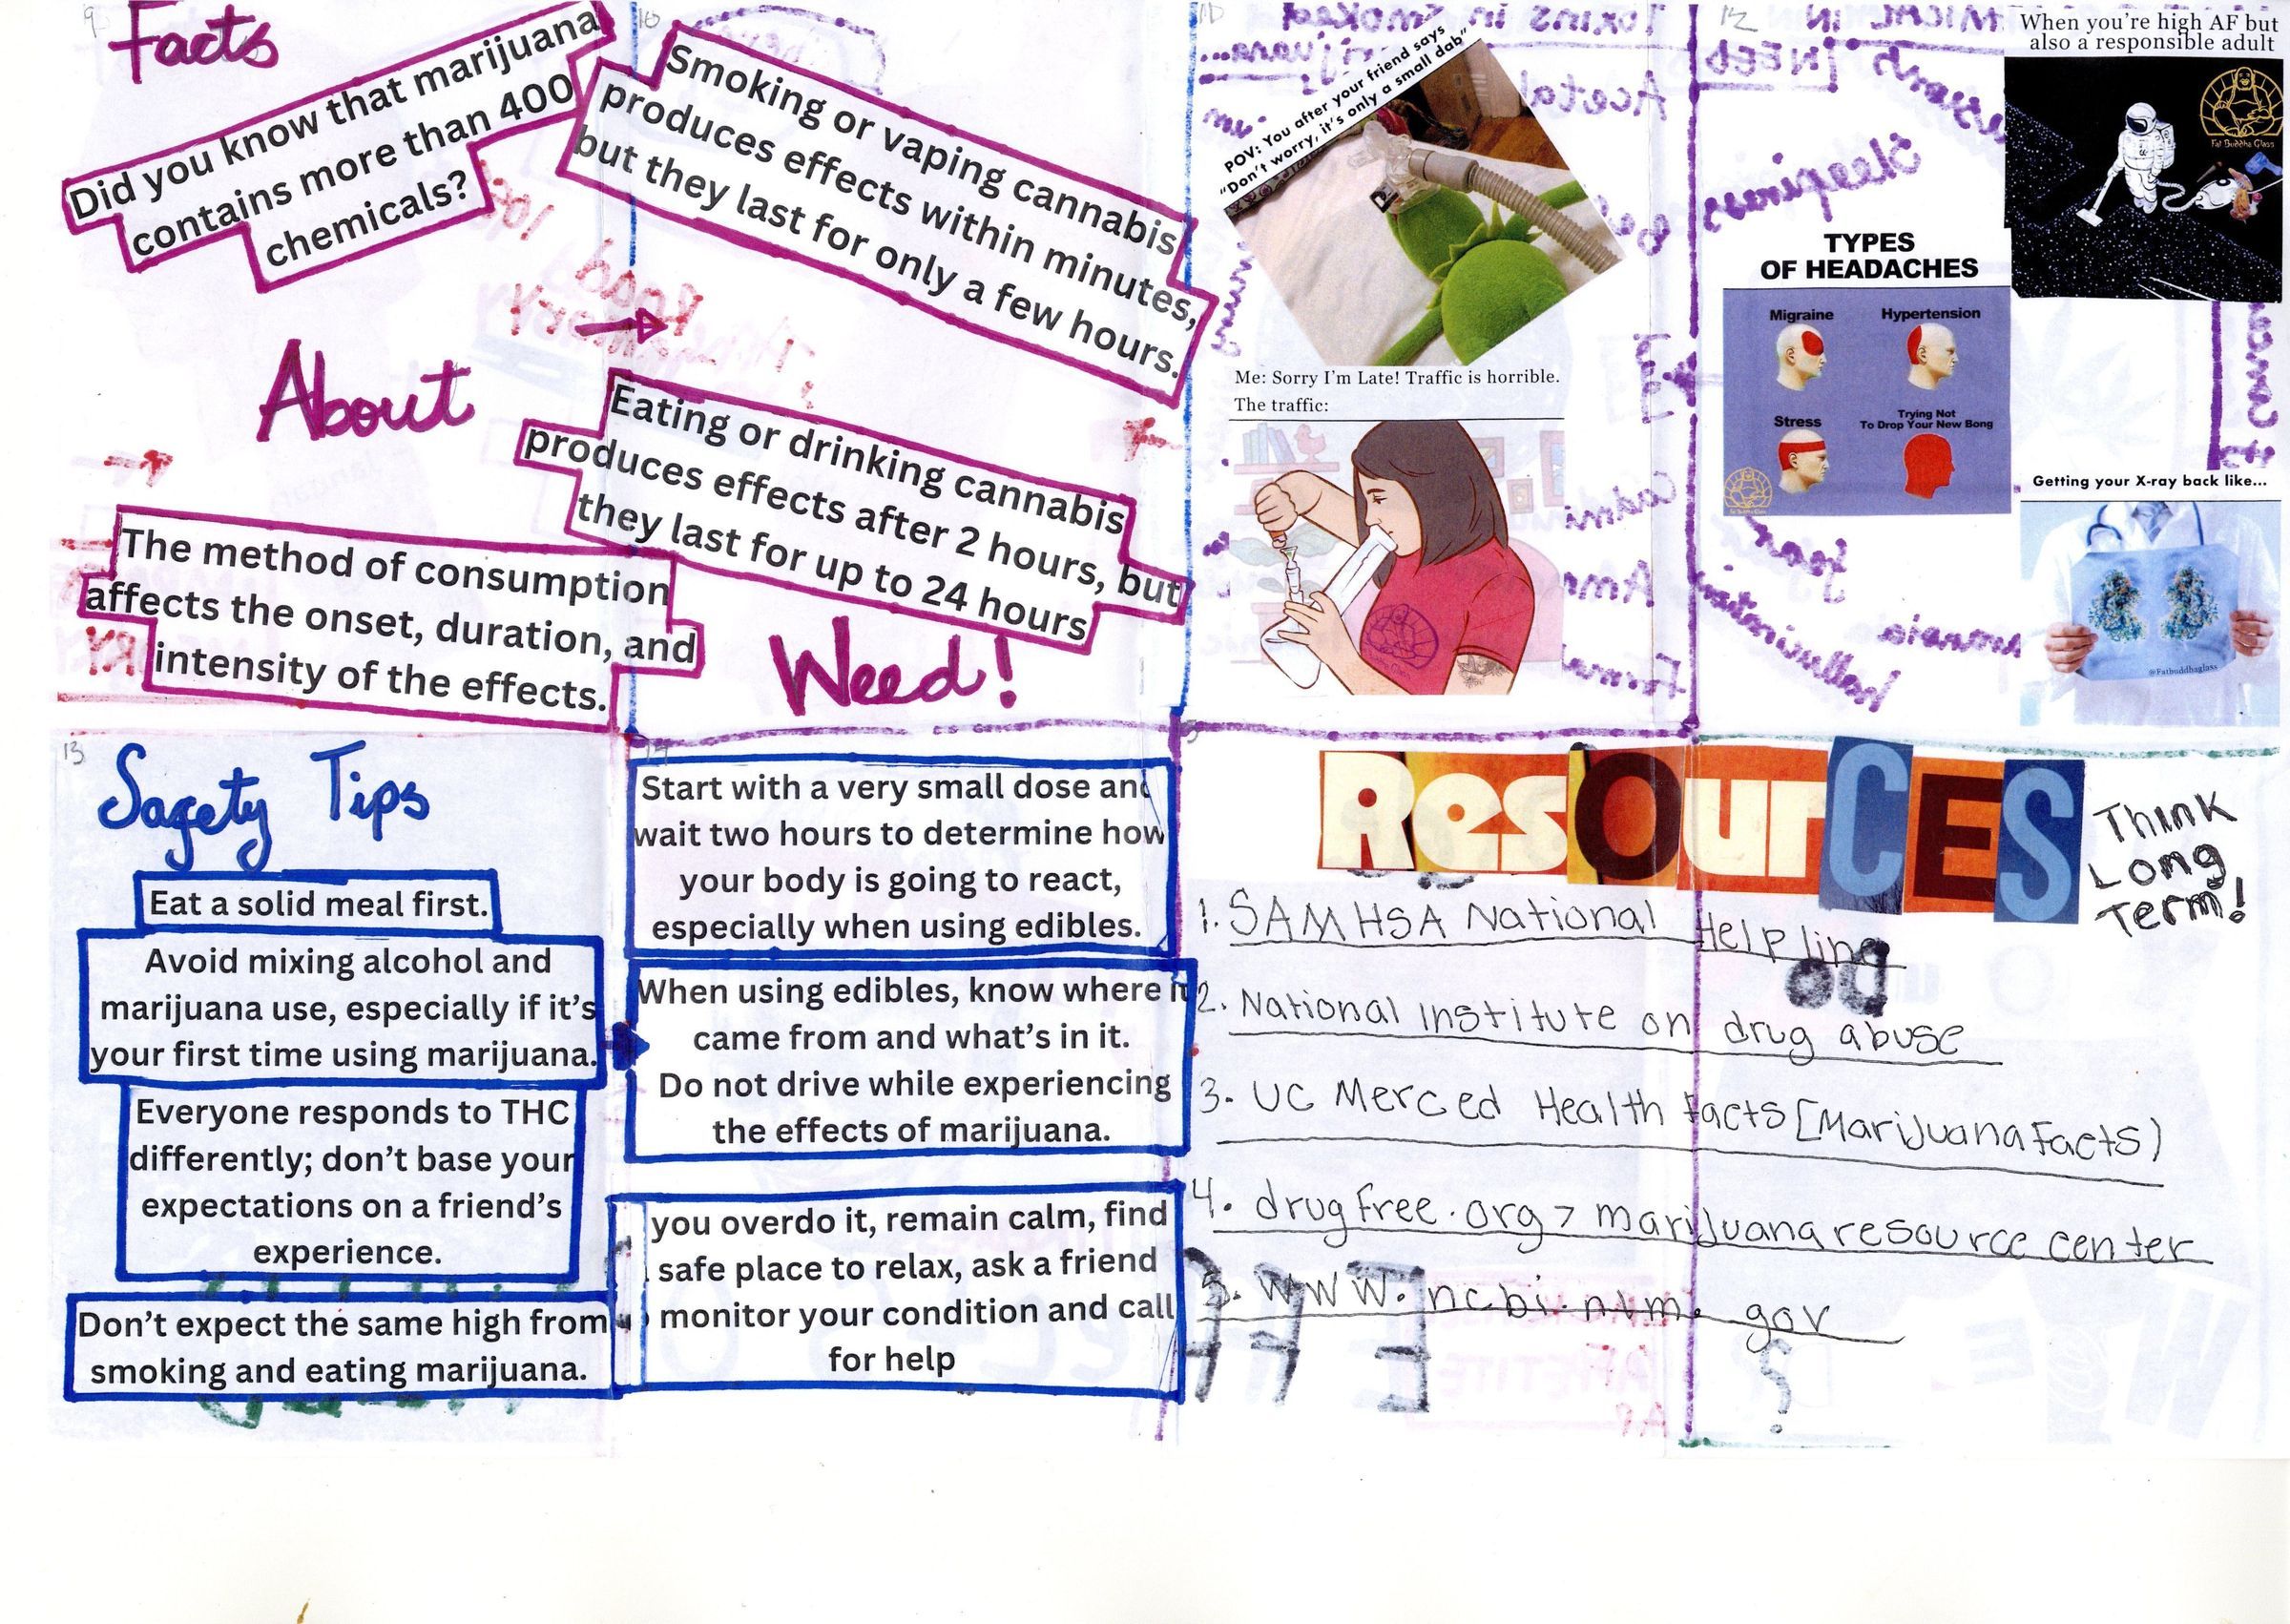 9
Facts
Did you know that marijuana
contains more than 400
chemicals?
About
The method of consumption
affects the onset, duration, and
intensity of the effects.
10
Smoking or vaping cannabis
produces effects within minutes,
but they last for only a few hours.
Eating or drinking cannabis
produces effects after 2 hours, but
they last for up to 24 hours
Weed!
11
POV: You after your friend says
"Don't worry, it's only a small dab"
Me: Sorry I'm Late! Traffic is horrible.
The traffic:
Fat Buddha Glass
12
When you're high AF but
also a responsible adult
Fat Buddha Glass
TYPES
OF HEADACHES
Migraine
Hypertension
Stress
Trying Not
To Drop Your New Bong
Getting your X-ray back like...
@Fatbuddhaglass
13
Sagety Tips
Eat a solid meal first.
Avoid mixing alcohol and
marijuana use, especially if it's
your first time using marijuana.
Everyone responds to THC
differently; don't base your
expectations on a friend's
experience.
Don't expect the same high from
smoking and eating marijuana.
Start with a very small dose and
wait two hours to determine how
your body is going to react,
especially when using edibles.
When using edibles, know where it
came from and what's in it.
Do not drive while experiencing
the effects of marijuana.
you overdo it, remain calm, find
safe place to relax, ask a friend
monitor your condition and call
for help
ResOurCES
Think
Long
Term!
1. SAMHSA National Helpline
2. National institute on drug abuse
3. UC Merced Health facts [Marijuana Facts)
4. drugfree.org > marijuana resource center
5. www.ncbi.nlm.gov